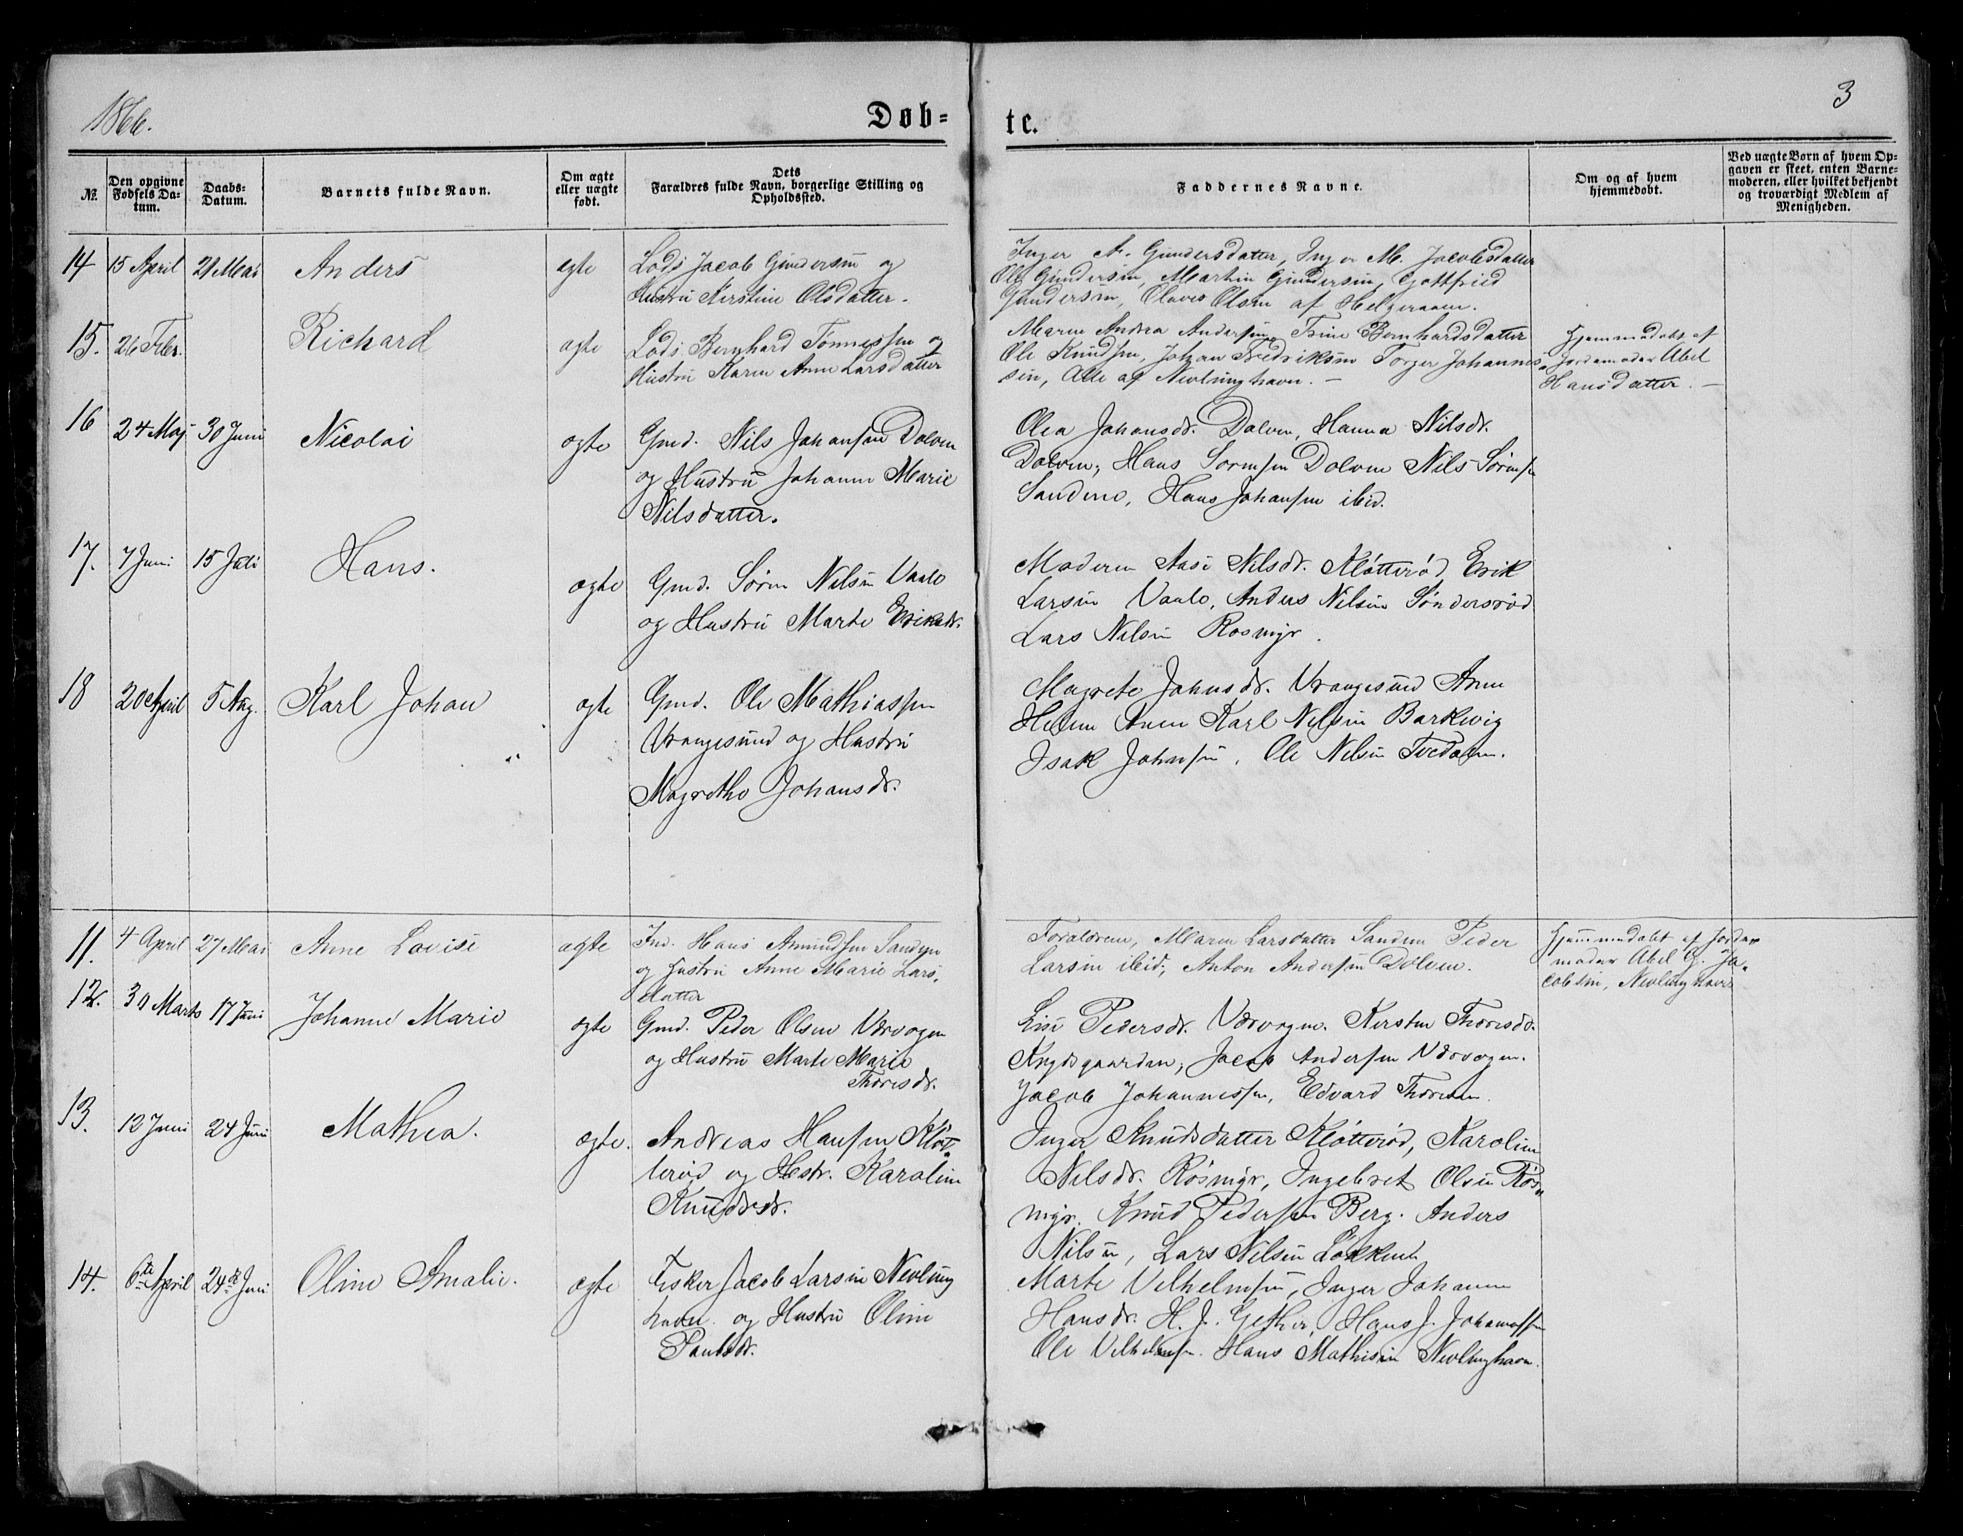 1866.
Døb=
te.
3
№.
Den opgivne Fødsels Da-
tum.
Daabs-
Datum.
Barnets fulde Navn.
Om ægte
eller uægte
født.
Dets
Forældres fulde Navn, borgerlige Stilling og
Opholdssted.
Faddernes Navne.
Om og af hvem
hjemmedøbt.
Ved uægte Børn af hvem Op-
gaven er skeet, enten Barne-
moderen, eller hvilket bekjendt
og troværdigt Medlem af
Menigheden.
14 15 April 21 Mai Anders ægte
Lods Jacob Gundersen og
Hustru Kirstine Olsdatter.
Inger A. Gundersdatter, Inger M. Jacobsdatter
Ole Gundersen, Martin Gundersen, Gottfried
Gundersen, Olaves Olsen af Helgeraaen.
15. 26 Febr. Richard ægte
Lods Bernhard Tønnessen og
Hustru Karen Anne Larsdatter
Maren Andrea Andersen, Trine Bernhardsdatter
Ole Knudsen, Johan Fredriksen Torger Johannes-
sen, Alle af Nevlunghavn. —
Hjemmedøbt af
Jordemoder Abel
Hansdatter. —
16 24 Maj 30 Juni Nicolai ægte
Gmd. Nils Johansen Dolven
og Hustru Johanne Marie
Nilsdatter.
Olea Johansdr. Dolven, Hanna Nilsdr.
Dolven, Hans Sørensen Dolven Nils Sørensen
Sandene, Hans Johansen ibid.
17. 7 Juni 15 Juli Hans. ægte
Gmd. Søren Nilsen Vaale
og Hustru Marte Eriksdr.
Moderen Aase Nilsdr. Kløtterød Erik
Larsen Vaale, Anders Nilsen Søndersrød
Lars Nilsen Rosmyr.
18 20 April 5 Aug. Karl Johan ægte
Gmd. Ole Mathiassen
Vrangesund og Hustru
Magrethe Johansdr.
Magrete Johnsdr. Vrangesund Anne
Helene Karl Nilsen Barkevig
Isak Johnsen, Ole Nilsen Tvedalen.
11. 4 April 27 Mai Anne Lovise ægte
Ind. Hans Amundsen Sanden
og Hustru Anne Marie Lars-
datter
Forældrene, Maren Larsdatter Sanden Peder
Larsen ibid, Anton Andersen Dolven.
Hjemmedøbt af Jorde-
moder Abel G. Ja-
cobsen, Nevlunghavn
12. 30 Marts 17 Juni Johanne Marie ægte
Gmd. Peder Olsen Vervagen
og Hustru Marte Marie
Thoresdr.
Lise Pedersdr. Vervagen. Kirsten Thoresdr.
Krydsgaarden, Jacob Andersen Vervagen.
Jacob Johannessen, Edvard Thoresen.
13. 12 Juni 24 Juni Mathea. ægte.
Andreas Hansen Kløt-
terød og Hstr. Karoline
Knudsdr.
Inger Knudsdatter Kløtterød, Karoline
Nilsdr. Rosmyr, Ingebret Olsen Ros-
myr. Knud Pedersen Berg. Anders
Nilsen, Lars Nilsen Løkken
14. 6te April 24de Juni Oline Amalie. ægte
Fisker Jacob Larsen Nevlung
havn og Hustru Oline
Paulsdr.
Marte Vilhelmsen, Inger Johanne
Hansdr. H. J. Gether, Hans J. Johannessen
Ole Vilhelmsen. Hans Mathisen Nevlunghavn.